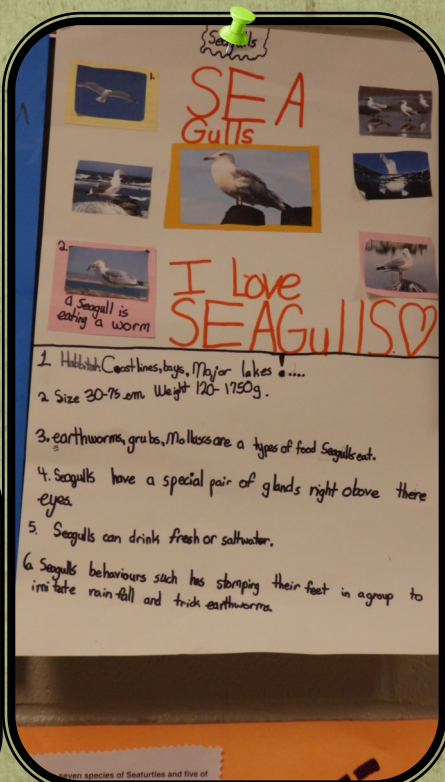 Seagulls
SEA
Gulls
1.
2.
a Seagull is
eating a worm
I Love
SEAGullS
1 Habitat: Coastlines, bays, Major lakes !....
2 Size 30-75 cm Weight 120-1750g.
3. earthworms, grubs, Molluscs are a types of food Seagulls eat.
4. Seagulls have a special pair of glands right above there
eyes.
5. Seagulls can drink fresh or saltwater.
6. Seagulls behaviours such has stomping their feet in a group to
imitate rain fall and trick earthworms.
seven species of Seaturtles and five of